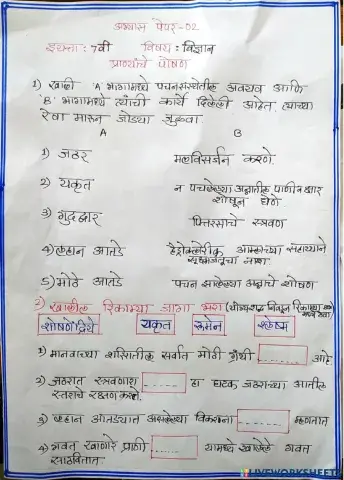 अभ्यास पेपर-02
इयत्ता : 7वी विषय : विज्ञान
प्राण्यांचे पोषण
1) खाली 'A' भागामध्ये पचनसंस्थेतील अवयव आणि
'B' भागामध्ये त्यांची कार्ये दिलेली आहेत. त्यांच्या
रेषा मारून जोड्या जुळवा.
A B
1) जठर मलविसर्जन करणे
2) यकृत न पचलेल्या अन्नातील पाणी व क्षार
शोषून घेणे
3) गुदद्वार पित्तरसाचे स्त्रवण
4) लहान आतडे हैड्रोक्लोरीक आम्लाच्या सहाय्याने
सूक्ष्मजंतूंचा नाश.
5) मोठे आतडे पचन झालेल्या अन्नाचे शोषण
2) खालील रिकाम्या जागा भरा (योग्य शब्द निवडून रिकाम्या
शोषणद्विपे यकृत रुमेन श्लेष्म
1) मानवाच्या शरीरातील सर्वात मोठी ग्रंथी ------ आहे.
2) जठरात स्त्रवणारा ------ हा घटक जठराच्या आतील
स्तराचे रक्षण करतो.
3) लहान आतड्यात असलेल्या विकरांना ------ म्हणतात
4) गवत खाणारे प्राणी ------ यामध्ये खाल्लेले गवत
साठवितात.
LIVEWORKSHEETS